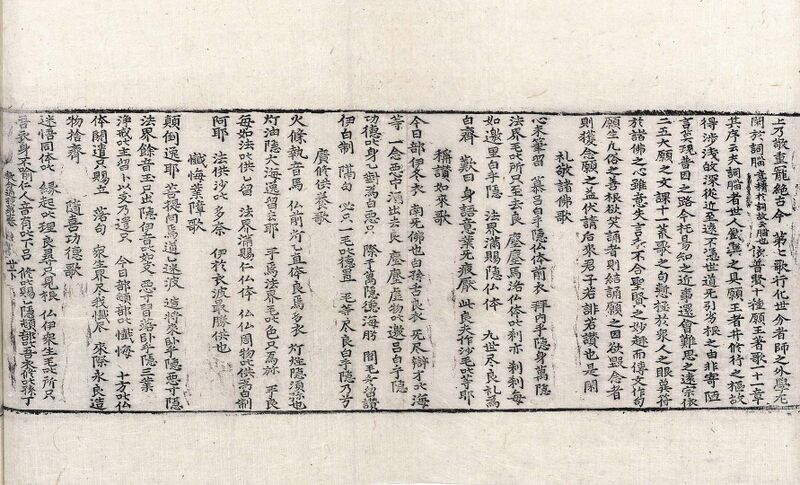 上乃敬重寵絶古今 第七歌行化世分者師之外學尤
閑於詞腦意精於詞故云腦也依普賢十種願王著歌一十一章
其序云夫詞腦者世人戱樂之具願王者井修行之樞故
得涉淺歸深從近至遠不憑世道无引劣根之由非寄陋
言莫現普因之路今托易知之近事還會難思之遠宗依
二五大願之文課十一荒歌之句慙極於衆人之眼冀符
於諸佛之心雖意失言乖不合聖賢之妙趣而傳文作句
願生凡俗之善根欲笑誦者則結誦願之因欲毁念者
則獲念願之益伏請后來君子若誹若讚也是閑
礼敬諸佛歌
心未筆留 慕呂白乎隱仏体前衣 拜內乎隱身萬隱
法界毛叱所只至去良 塵塵馬洛仏体叱刹亦 刹刹每
如邀里白乎隱 法界滿賜隱仏体 九世尽良礼爲
白齊 歎曰 身語意業无疲厭 此良夫作沙毛叱等耶
稱讚如來歌
今日部伊冬衣 南无佛也白孫舌良衣 无尽辯才叱海
等 一念惡中涌出去良 塵塵虛物叱邀呂白乎隱
功德叱身乙對爲白惡只 際于萬隱德海肹 間毛冬留讚
伊白制 隔句 必只一毛叱德置 毛等尽良白乎隱乃兮
廣修供養歌
火條執音馬 仏前灯乙直体良焉多衣 灯炷隱須弥也
灯油隱大海逸留去耶 手焉法界毛叱色只爲旀 手良
每如法叱供乙留 法界滿賜仁仏体 仏仏周物叱供爲白制
阿耶 法供沙叱多奈 伊於衣波最勝供也
懺悔業障歌
顚倒逸耶 菩提向焉道乙迷波 造將來臥乎隱惡寸隱
法界餘音玉只出隱伊音叱如支 惡寸習落臥乎隱三業
淨戒叱主留卜以支乃遣只 今日部頓部叱懺悔 十方叱仏
体閼遣只賜立 落句 衆生界尽我懺尽 來際永良造
物捨齊 隨喜功德歌
迷悟同体叱 緣起叱理良尋只見根 仏伊衆生毛叱所只
吾衣身不喩仁人音有叱下呂 修叱賜乙隱頓部叱吾衣修叱孫丁